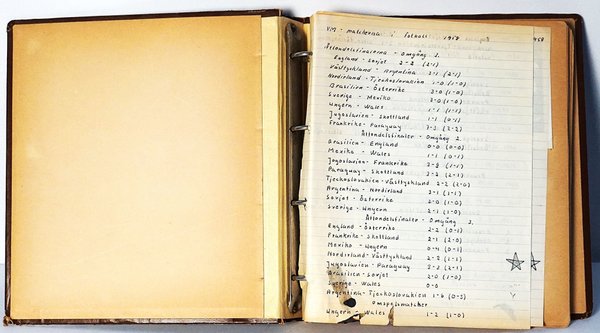 VM - matcherna i fotboll 1958
Åttondelsfinalerna - Omgång 1.
England - Sovjet 2-2 (2-1)
Västtyskland - Argentina 3-1 (2-1)
Nordirland - Tjeckoslovakien 1-0 (1-0)
Brasilien - Österrike 3-0 (1-0)
Sverige - Mexiko 3-0 (1-0)
Ungern - Wales 1-1 (1-1)
Jugoslavien - Skottland 1-1 (0-1)
Frankrike - Paraguay 7-3 (2-2)
Åttondelsfinaler - Omgång 2.
Brasilien - England 0-0 (0-0)
Mexiko - Wales 1-1 (0-1)
Jugoslavien - Frankrike 3-2 (1-1)
Paraguay - Skottland 3-2 (2-1)
Tjeckoslovakien - Västtyskland 2-2 (2-0)
Argentina - Nordirland 3-1 (1-1)
Sovjet - Österrike 2-0 (1-0)
Sverige - Ungern 2-1 (1-0)
Åttondelsfinaler - Omgång 3.
England - Österrike 2-2 (0-1)
Frankrike - Skottland 2-1 (2-0)
Mexiko - Ungern 0-4 (0-1)
Nordirland - Västtyskland 2-2 (1-1)
Jugoslavien - Paraguay 3-3 (2-1)
Brasilien - Sovjet 2-0 (1-0)
Sverige - Wales 0-0
Argentina - Tjeckoslovakien 1-6 (0-3)
Omspelsmatcher
Ungern - Wales 1-2 (1-0)